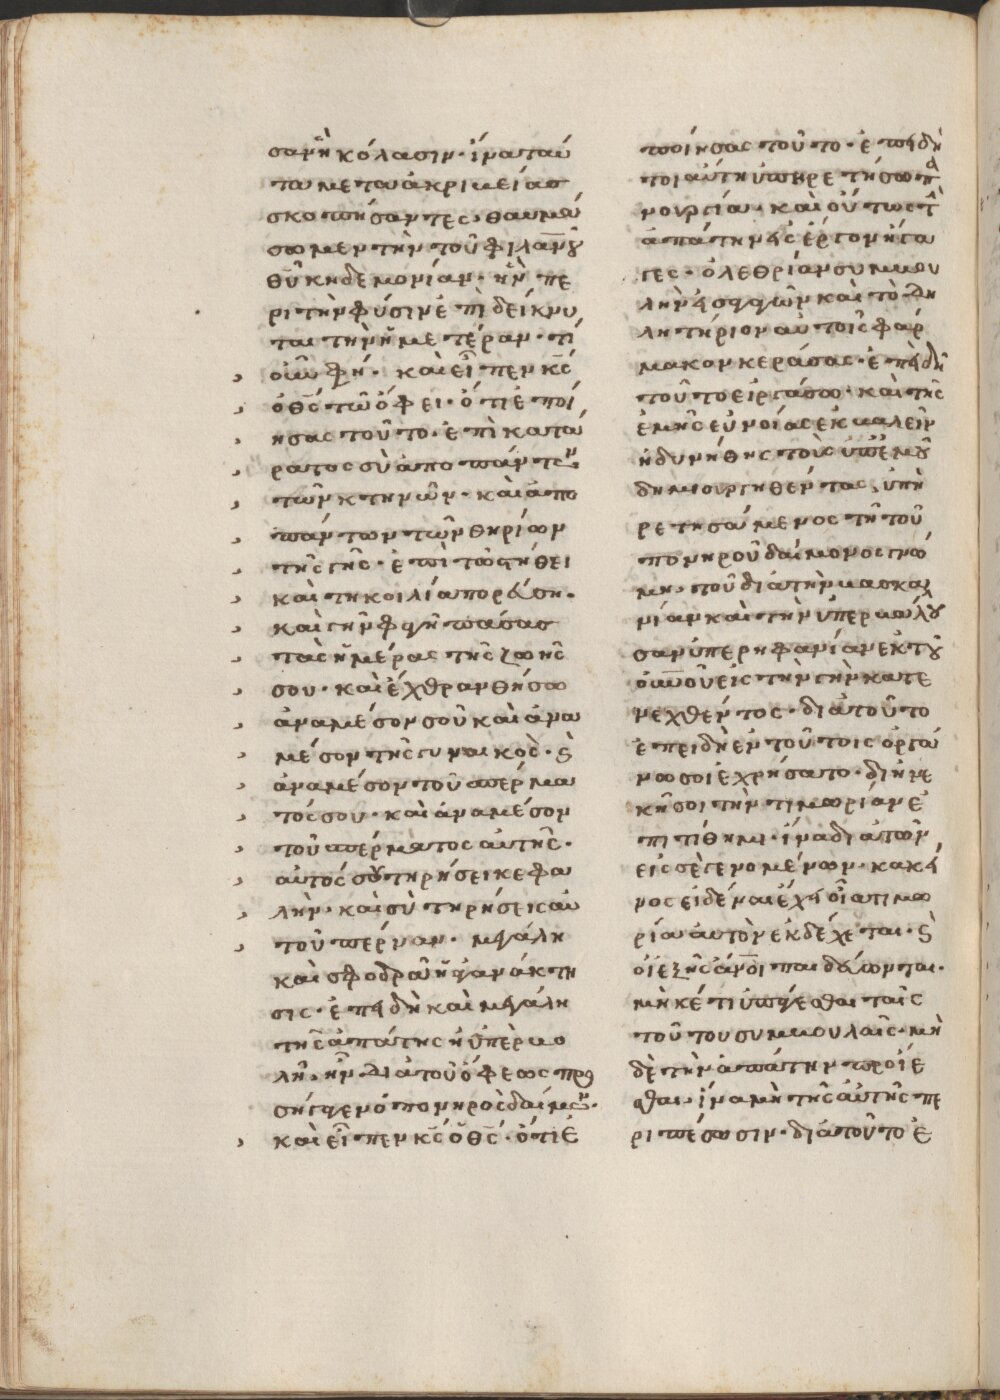 σαν ἢ κόλασιν· ἵνα ταῦ
τα μετα ἀκριβείας
σκοπήσαντες, θαυμά
σωμεν τὴν τοῦ φιλαν̅ου
θ̅υ κηδεμονίαν· ἣν πε
ρι τὴν φύσιν ἐπιδείκνυ
ται τὴν ἡμετέραν· τί
οὖν φη· καὶ εἶπεν κ̅ς
ὁ θ̅ς τῶ ὄφει· ὅτι ἐποί
ησας τοῦτο· ἐπικατά
ρατος σὺ ἀπο πάντων
τῶν κτηνῶν· καὶ ἀπο
πάντων τῶν θηρίων
τῆς γῆς· ἐπὶ τῶ στήθει
καὶ τη κοιλία πορεύση·
καὶ γῆν φαγῆ πάσας
τὰς ἡμέρας τῆς ζωῆς
σου· καὶ ἔχθραν θήσω
ἀναμέσον σοῦ καὶ ἀνα
μέσον τῆς γυναικός· ϗ
ἀναμέσον τοῦ σπέρμα
τός σου· καὶ ἀναμέσον
τοῦ σπέρματος αὐτῆς·
αὐτός σου τηρήσει κεφα
λὴν· καὶ σὺ τηρήσεις αὐ
τοῦ πέρναν· μεγάλη
καὶ σφοδρὰ ἡ ἀγανάκτη
σις· ἐπειδὴ καὶ μεγάλη
τῆς ἀπάτης ἡ ὑπερβο
λὴ, ἣν διὰ τοῦ ὄφεως προ
σήγαγεν ὁ πονηρὸς δαίμων·
καὶ εἶπεν κ̅ς ὁ θ̅ς· ὅτι ἐ
ποίησας τοῦτο· ἐπειδὴ
τοιαύτη ὑπηρετήσω πα
νουργία· καὶ οὕτως τὴν
ἀπάτην εἰς ἔργον ἤγα
γες· ὀλεθρίαν συμβου
λὴν εἰσαγαγὼν καὶ τὸ δη
λητήριον αὐτοῖς φάρ
μακον κεράσας· ἐπειδὴ
τοῦτο εἰργάσω· καὶ τῆς
ἐμῆς εὐνοίας ἐκβαλεῖν
ἠβουλήθης τοὺς ὑπ' ἐμοῦ
δημιουργηθέντας, ὑπη
ρετησάμενος τῆ τοῦ
πονηροῦ δαίμονος γνώ
μη, τοῦ διὰ τὴν βασκα
νίαν καὶ τὴν ὑπερβάλλου
σαν ὑπερηφανίαν ἐκ τοῦ
ο̅υ̅νοῦ εἰς τὴν γῆν κατε
νεχθέντος· διὰ τοῦτο
ἐπειδὴ ἐν τούτοις ὀργά
νω σοι ἐχρήσατο· διηνε
κῆ σοι τὴν τιμωρίαν ἐ
πιτίθημι· ἵνα διὰ τῶν
εἰς σὲ γενομένων· κακεῖ
νος εἰδέναι ἔχη οἵα τιμω
ρία αὐτὸν ἐκδέχεται· ϗ
οἱ ἑξῆς ἄν̅οι παιδεύωνται·
μηκέτι ὑπάγεσθαι ταῖς
τούτου συμβουλαῖς· μη
δὲ τὴν ἀπάτην προΐε
σθαι, ἵνα μὴ τῆς αὐτῆς πε
ριπέσωσιν· διὰ τοῦτο ἐ